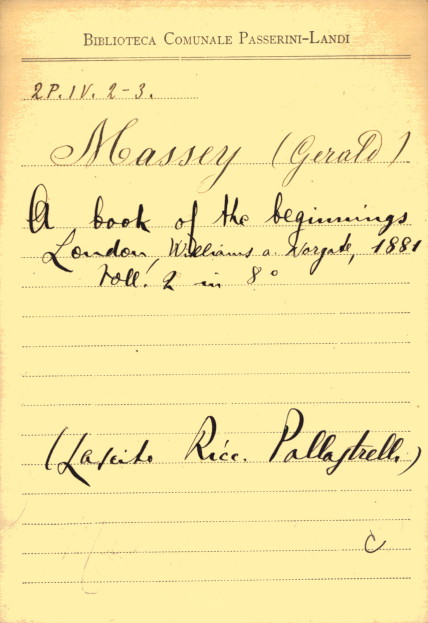 BIBLIOTECA COMUNALE PASSERINI-LANDI
2P.IV. 2-3.
Massey (Gerald)
A book of the beginnings
London, Williams a. Norgate, 1881
Voll. 2 in 8°
(Lascito Ricc. Pallastrelli)
C